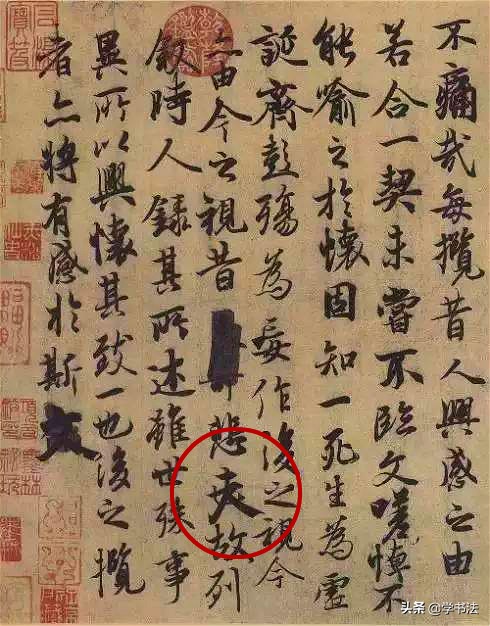 不痛哉每攬昔人興感之由
若合一契未嘗不臨文嗟悼不
能喻之於懷固知一死生為虛
誕齊彭殤為妄作後之視今
亦由今之視昔悲夫故列
敘時人錄其所述雖世殊事
異所以興懷其致一也後之攬
者亦將有感於斯文
头条 @学书法